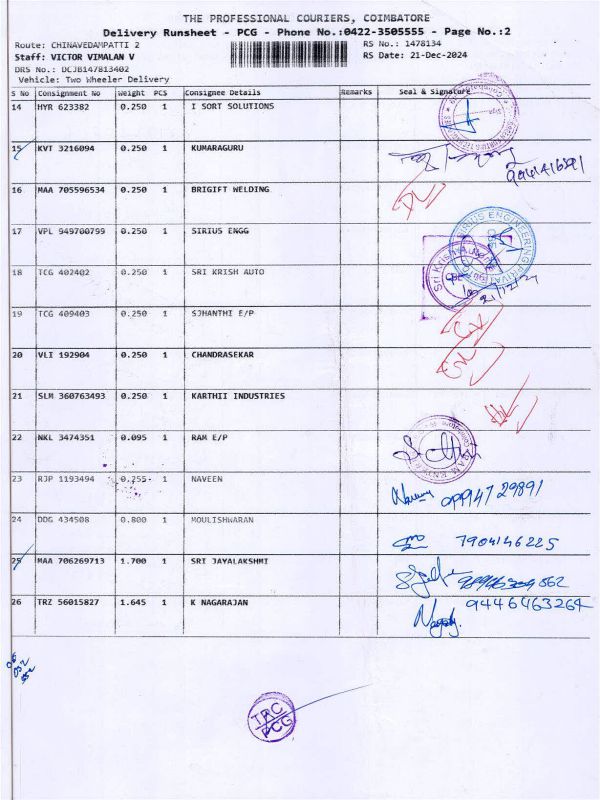 THE PROFESSIONAL COURIERS, COIMBATORE
Delivery Runsheet - PCG - Phone No.:0422-3505555 - Page No.:2
Route: CHINAVEDAMPATTI 2 RS No.: 1478134
Staff: VICTOR VIMALAN V RS Date: 21-Dec-2024
DRS No.: DCJB147813402
Vehicle: Two Wheeler Delivery
S No Consignment No Weight PCS Consignee Details Remarks Seal & Signature
14 HYR 623382 0.250 1 I SORT SOLUTIONS
15 KVT 3216094 0.250 1 KUMARAGURU
16 MAA 705596534 0.250 1 BRIGIFT WELDING
DL
17 VPL 949700799 0.250 1 SIRIUS ENGG
SIRIUS ENGINEERING PRIVATE
CBE
18 TCG 402402 0.250 1 SRI KRISH AUTO
Sri Krish Auto
CBE
19 TCG 409403 0.250 1 SJHANTHI E/P
20 VLI 192904 0.250 1 CHANDRASEKAR
21 SLM 360763493 0.250 1 KARTHII INDUSTRIES
22 NKL 3474351 0.095 1 RAM E/P
23 RJP 1193494 0.255 1 NAVEEN
09947 29891
24 DDG 434508 0.800 1 MOULISHWARAN
7904146225
25 MAA 706269713 1.700 1 SRI JAYALAKSHMI
26 TRZ 56015827 1.645 1 K NAGARAJAN
9446463264
TRC
PCG